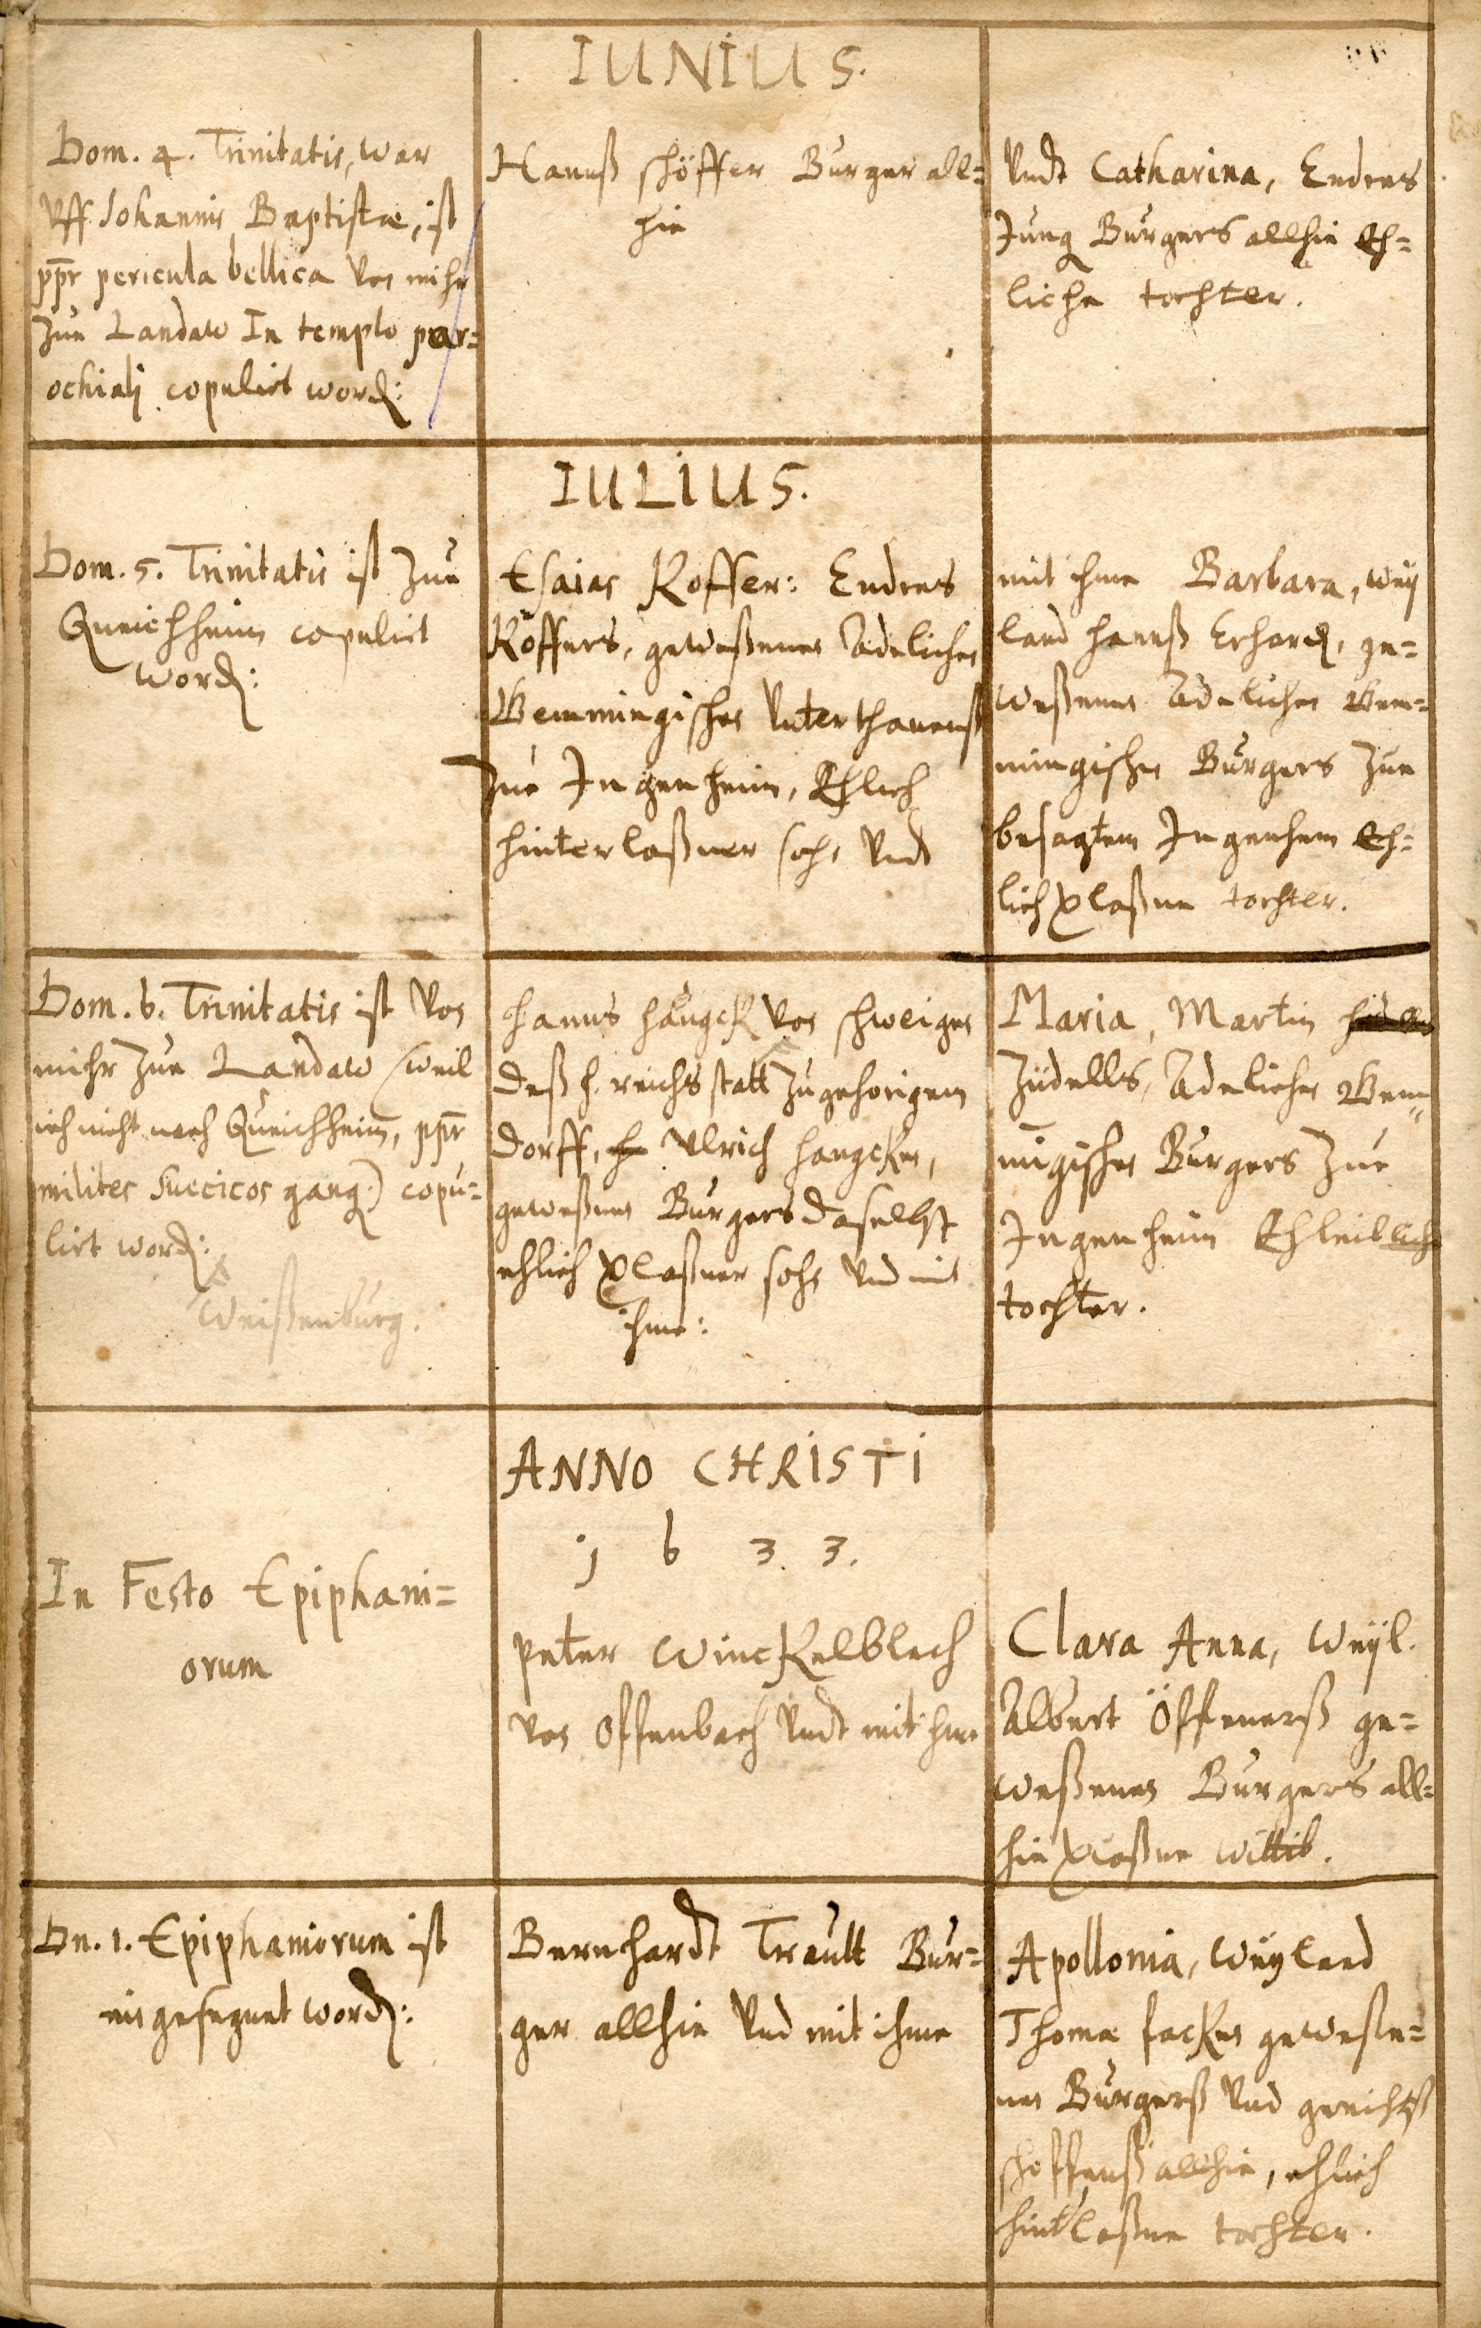 IUNIUS.
Dom. 4. Trinitatis, war
vff Johannis Baptistæ, ist
ppr pericula bellica von mihr
zue Landaw In templo par=
ochiali copulirt word:
Hannß schöffer Burger all=
hie
Vndt Catharina, Endres
Jung Burgers allhie Eh=
liche tochter.
IULIUS.
Dom. 5. Trinitatis ist zue
Queichheim copulirt
word:
Esaias Koffer: Endres
Köffers, geweßenen Adelichen
Gemmingischen Vnterthanenß
zue Ingenheim, Ehlich
hinterlaßner sohn Vndt
mit ihme Barbara, wey
land Hannß Erhard, ge=
weßenen Adelichen Gem=
mingischen Burgers zue
besagtem Ingenheim Eh=
lich Vlaßne tochter.
Dom. 6. Trinitatis ist von
mihr zue Landaw (weil
ich nicht nach Queichheim, ppr
milites Suecicos gang:) copu=
lirt word:
Weißenburg.
Hanns Haugck von schweigen
deß h. reichs statt zugehorigem
dorff, Vlrich Haugcken,
geweßnen Burgers daselbst
ehlich Vlaßner sohn Vnd mit
ihme:
Maria, Martin
Zudells, Adelichen Gem=
migischen Burgers zue
Ingenheim Ehleibliche
tochter.
ANNO CHRISTI
1 6 3. 3.
In Festo Epiphani=
orum
Peter Winckelblech
von Offenbach Vndt mit ihme
Clara Anna, Weyl.
Albert Öffenerß ge=
weßenen Burgers all=
hie Vlaßne Wittib.
Dn. 1. Epiphaniorum ist
eingesegnet word:
Bernhardt Trautt Bur=
ger allhie Vnd mit ihme
Apollonia, Weyland
Thomæ facken geweße=
nen Burgerß Vnd gerichtß
schoffenß allhie, ehlich
hintlaßne tochter.